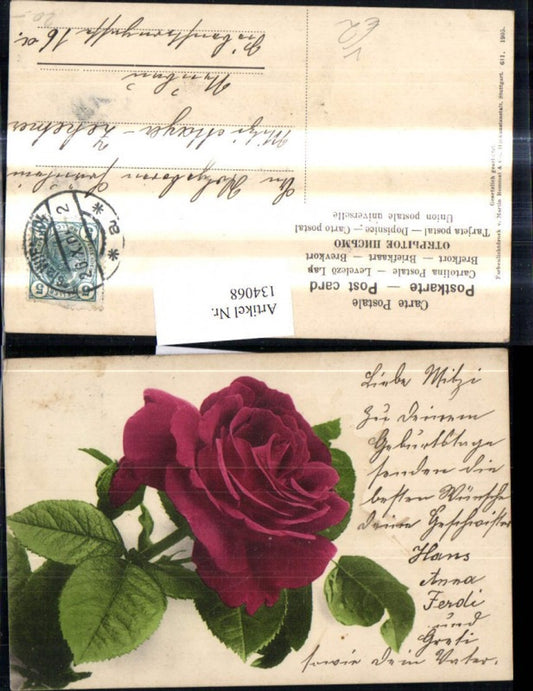 Carte Postale
Postkarte — Post card
Cartolina Postale — Levelező Lap
Brefkort — Briefkaart — Brevkort
ОТКРЫТОЕ ПИСЬМО
Tarjeta postal — Dopisnice — Carte postal
Union postale universelle
Gesetzlich geschützt.
Farbenlichtdruck v. Martin Rommel & Co., Hofkunstanstalt, Stuttgart. 611. 1905.
Artikel Nr.
134068
5
5
Mitzi Mayer-
16
Liebe Mitzi
Zu Deinem
Geburtstage
senden die
besten Wünsche
Deine Geschwister
Hans
Anna
Ferdi
und
Greti
sowie Dein Vater.